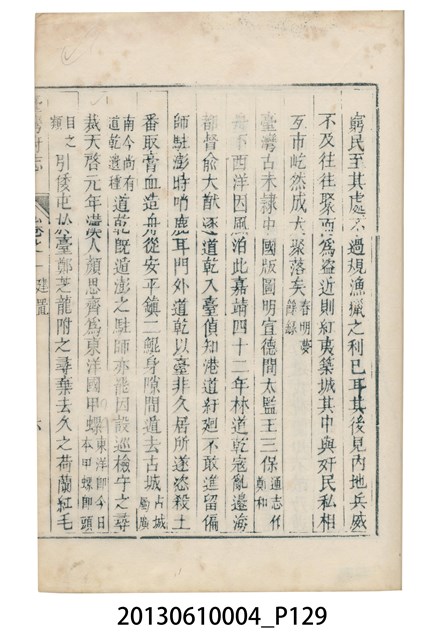 窮民至其處不過規漁獵之利已耳其後見內地兵威
不及往往聚而為盜近則紅夷築城其中與奸民私相
互市屹然成大聚落矣春明夢餘錄
臺灣古未隸中國版圖明宣德間太監王三保通志作鄭和
舟下西洋因風泊此嘉靖四十二年林道乾寇亂邊海
都督俞大猷逐道乾入臺偵知港道紆迴不敢進留偏
師駐澎時哨鹿耳門外道乾以臺非久居所遂恣殺土
番取膏血造舟從安平鎮二鯤身隙間遁去占城占城屬廣
南今尚有道乾遺種道乾既遁澎之駐師亦罷因設巡檢守之尋
裁天啓元年漢人顏思齊為東洋國甲螺東洋即今日本甲螺即頭
目之類引倭屯於臺鄭芝龍附之尋棄去久之荷蘭紅毛
臺灣府志 卷之一 建置 六
20130610004_P129